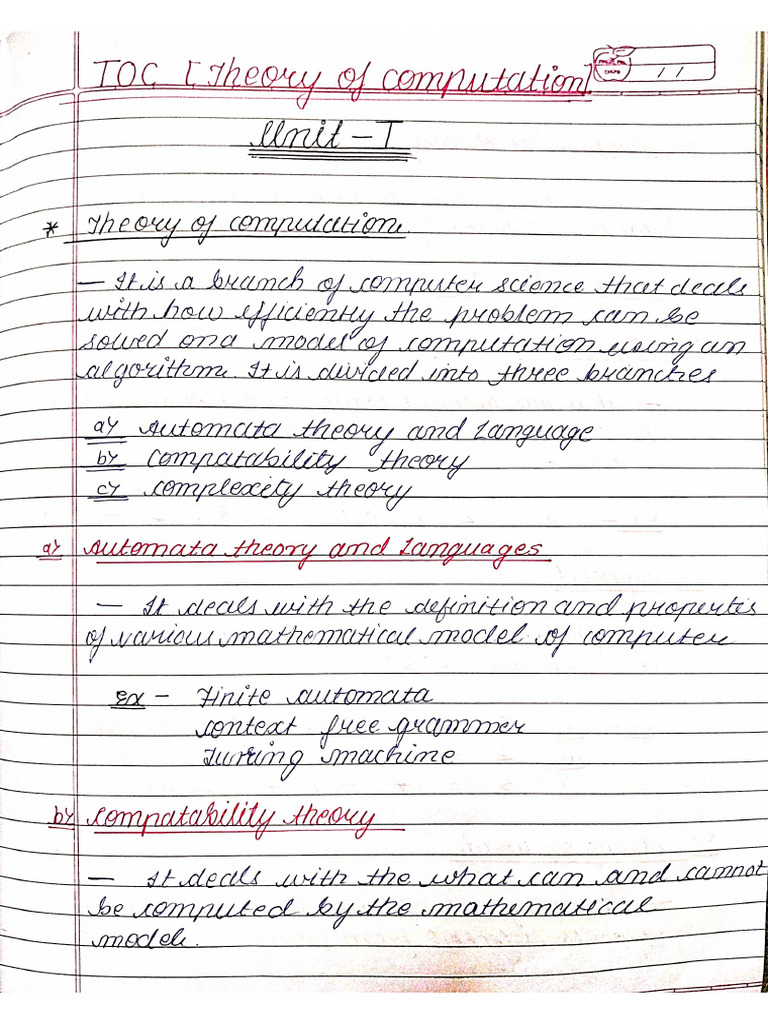 TOC [Theory of computation]
/ /
Unit - I
* Theory of computation
— It is a branch of computer science that deals
with how efficiently the problem can be
solved on a model of computation using an
algorithm. It is divided into three branches
a) Automata theory and Language
b) Compatability theory
c) Complexity theory
a) Automata theory and Languages
— It deals with the definition and properties
of various mathematical model of computer
Ex - Finite automata
context free grammer
Turring machine
b) Compatability theory
— It deals with the what can and cannot
be computed by the mathematical
model.